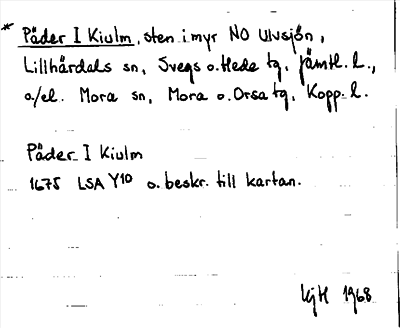 * Påder I Kiulm, sten i myr NO Ulvsjön,
Lillhärdals sn, Svegs o. Hede tg, Jämtl. l.,
a/el. Mora sn, Mora o. Orsa tg, Kopp. l.
Påder I Kiulm
1675 LSA Y10 o. beskr. till kartan.
KjH 1968